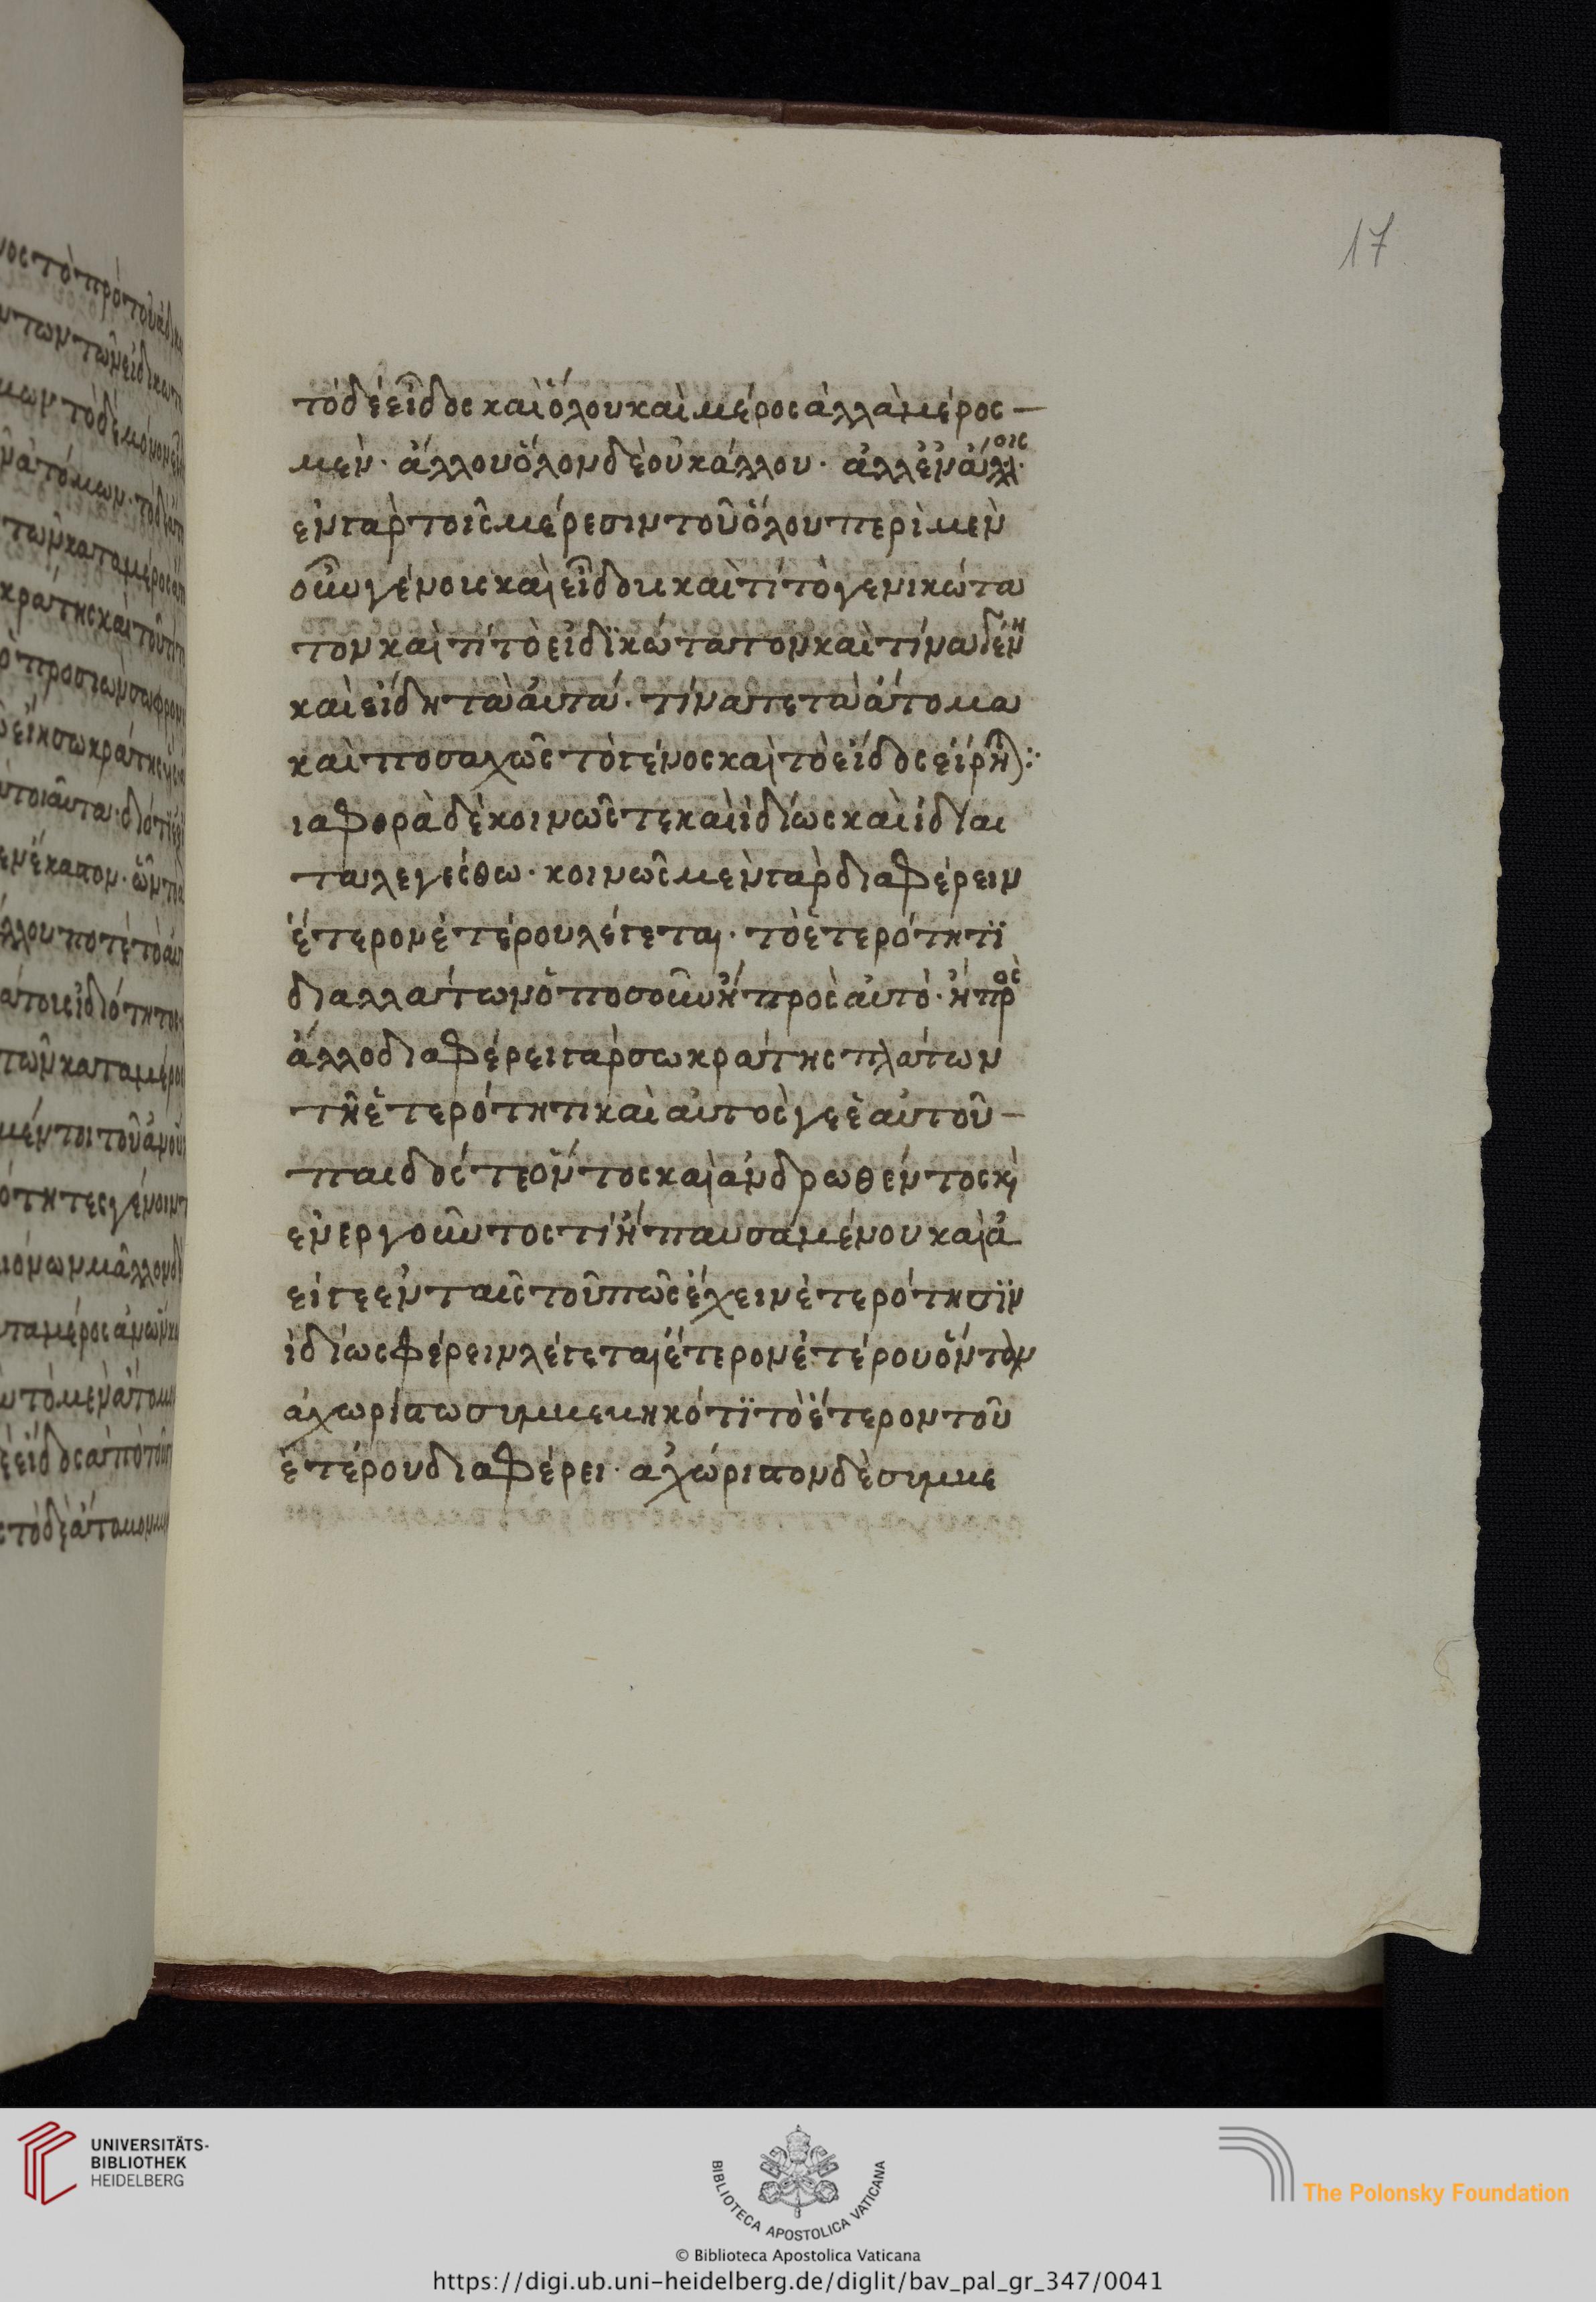 17
τὸ δὲ εἶδος καὶ ὅλου καὶ μέρος ἀλλὰ μέρος —
μὲν · ἄλλου ὅλον δὲ οὐκ ἄλλου · ἀλλ ἐν ἄλλοις ·
ἐν γὰρ τοῖς μέρεσιν τοῦ ὅλου περὶ μὲν
οὖν γένους καὶ εἴδους καὶ τί τὸ γενικώτα
τον καὶ τί τὸ εἰδϊκώτατον καὶ τίνα γένη
καὶ εἴδη τὰ αὐτά · τίνα τε τὰ ἄτομα
καὶ ποσαχῶς τὸ γένος καὶ τὸ εἶδος εἴρηται :·
ιαφορὰ δὲ κοινῶς τε καὶ ἰδίως καὶ ἰδίαι
τα λεγέσθω · κοινῶς μὲν γὰρ διαφέρειν
ἕτερον ἑτέρου λέγεται · τὸ ἑτερότητϊ
διαλλάττων ὁποσοῦν ἢ πρὸς αὐτό · ἢ πρὸς
ἄλλο διαφέρει γὰρ σωκράτης πλάτων
τῆ ἑτερότητι καὶ αὐτός γε ἑαυτοῦ —
παιδός τε ὄντος καὶ ἀνδρωθέντος καὶ
ἐνεργοῦντος τι ἢ παυσαμένου καὶ ἀ
εί γε ἐν ταῖς τοῦ πῶς ἔχειν ἑτερότησϊν
ἰδίως φέρειν λέγεται ἕτερον ἑτέρου ὄντὸν
ἀχωρίστω συμβεβηκότϊ τὸ ἕτερον τοῦ
ἑτέρου διαφέρει · ἀχώριστον δὲ συμβε
UNIVERSITÄTS-
BIBLIOTHEK
HEIDELBERG
BIBLIOTECA APOSTOLICA VATICANA
The Polonsky Foundation
© Biblioteca Apostolica Vaticana
https://digi.ub.uni-heidelberg.de/diglit/bav_pal_gr_347/0041